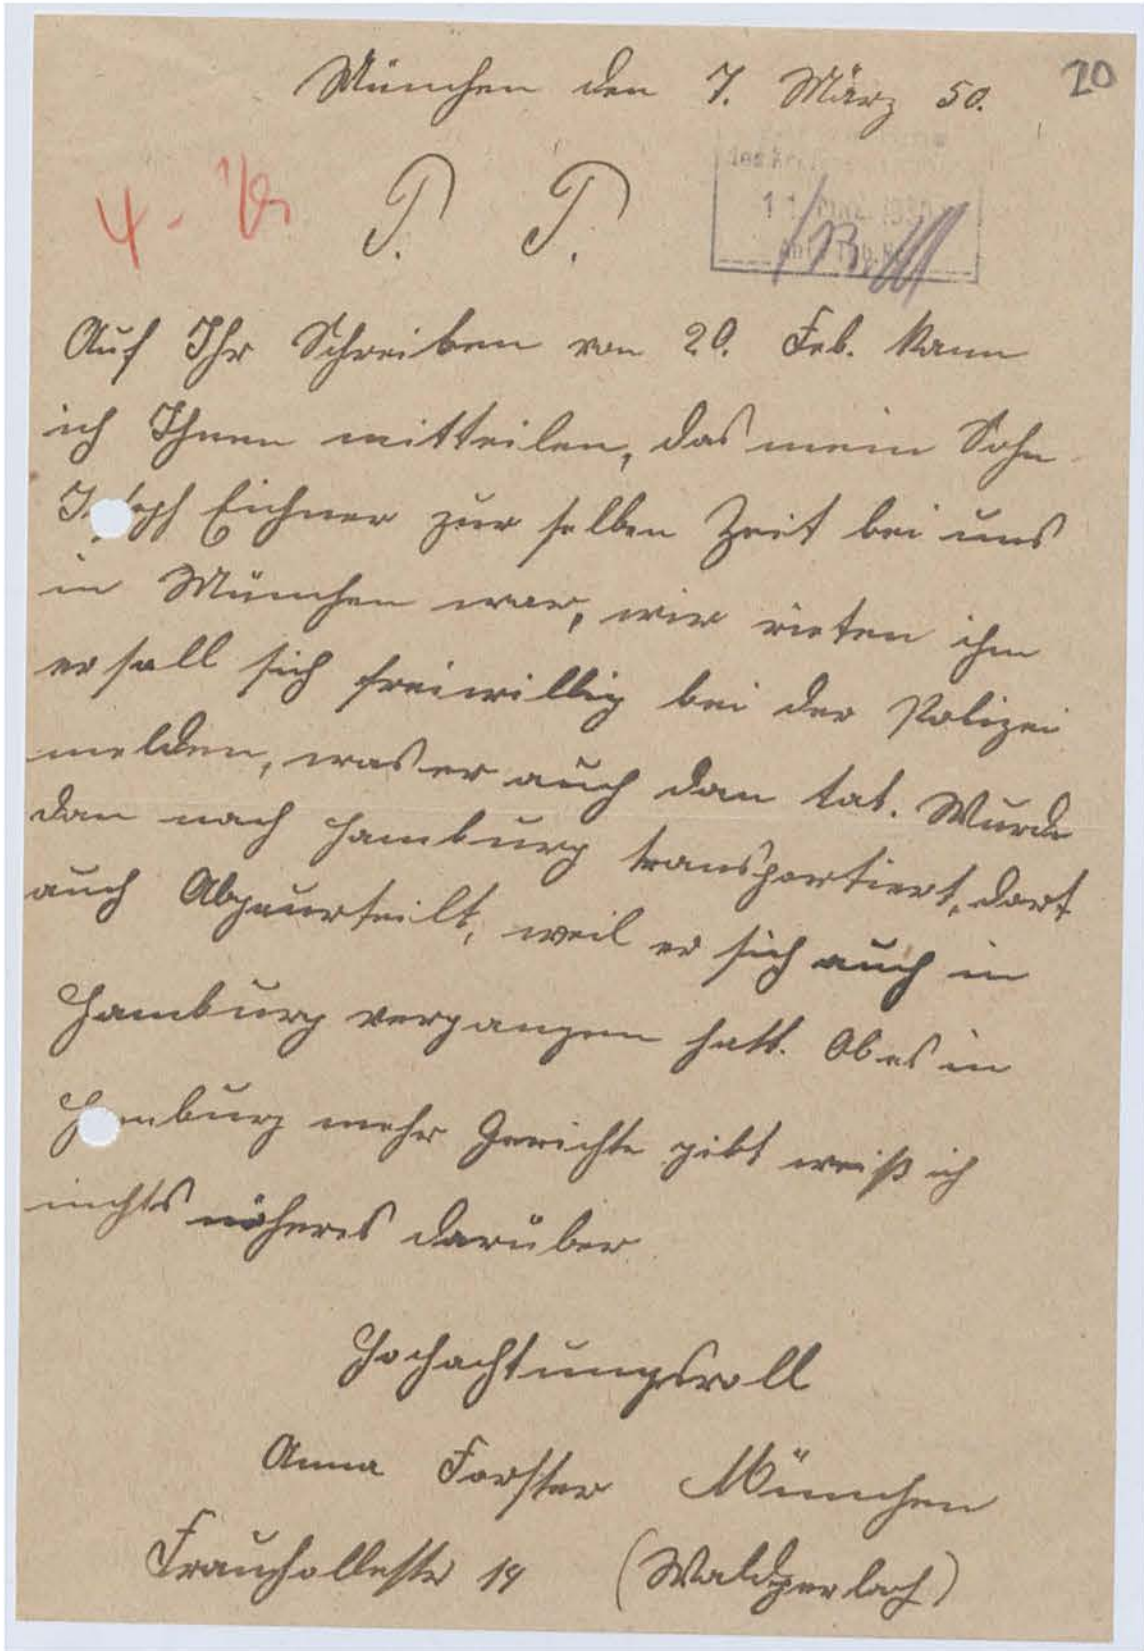 20
München den 7. März 50.
P. P.
4 -
11. MRZ. 1950
Auf Ihr Schreiben von 20. Feb. kann
ich Ihnen mitteilen, das mein Sohn
Joseph Eichner zur selben Zeit bei uns
in München war, wir rieten ihm
er soll sich freiwillig bei der Polizei
melden, was er auch dan tat. Wurde
dan nach Hamburg transportiert, dort
auch Abgeurteilt, weil er sich auch in
Hamburg vergangen hatt. Ob es in
Hamburg mehr Gerichte gibt weiß ich
nichts näheres darüber.
Hochachtungsvoll
Anna Forster München
Frauhollestr 14 (Waldperlach)